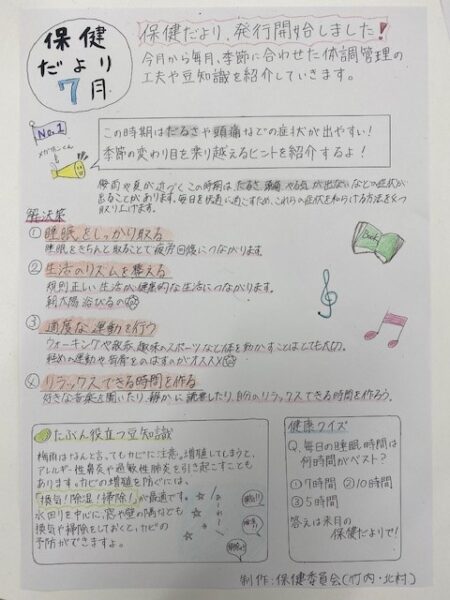 保健だより 7月
保健だより、発行開始しました!
今月から毎月、季節に合わせた体調管理の
工夫や豆知識を紹介していきます。
No.1
メガホンくん
この時期はだるさや頭痛などの症状が出やすい!
季節の変わり目を乗り越えるヒントを紹介するよ!
梅雨や夏が近づくこの時期は、だるさ、頭痛、やる気が出ないなどの症状が
出ることがあります。毎日を快適に過ごすため、これらの症状を和らげる方法を
取り上げます。
解決策
①睡眠をしっかり取る
睡眠をきちんと取ることで疲労回復につながります。
②生活のリズムを整える
規則正しい生活が健康的な生活につながります。
朝太陽浴びるの
③適度な運動を行う
ウォーキングや散歩、趣味のスポーツなど体を動かすことはとても大切。
軽めの運動や背骨をのばすのがオススメ
④リラックスできる時間を作る
好きな音楽を聞いたり、静かに読書したり、自分のリラックスできる時間を作ろう。
Book
たぶん役立つ豆知識
梅雨はなんと言ってもカビに注意。増殖してしまうと、
アレルギー性鼻炎や過敏性肺炎を引き起こすことも
あります。カビの増殖を防ぐには、
「換気!除湿!掃除!」が最適です。
水回りを中心に、窓や壁の隅なども
換気や掃除をしておくと、カビの
予防ができますよ。
健康クイズ
Q.毎日の睡眠時間は
何時間がベスト?
①7時間 ②10時間
③5時間
答えは来月の
保健だよりで!
制作:保健委員会(竹内・北村)